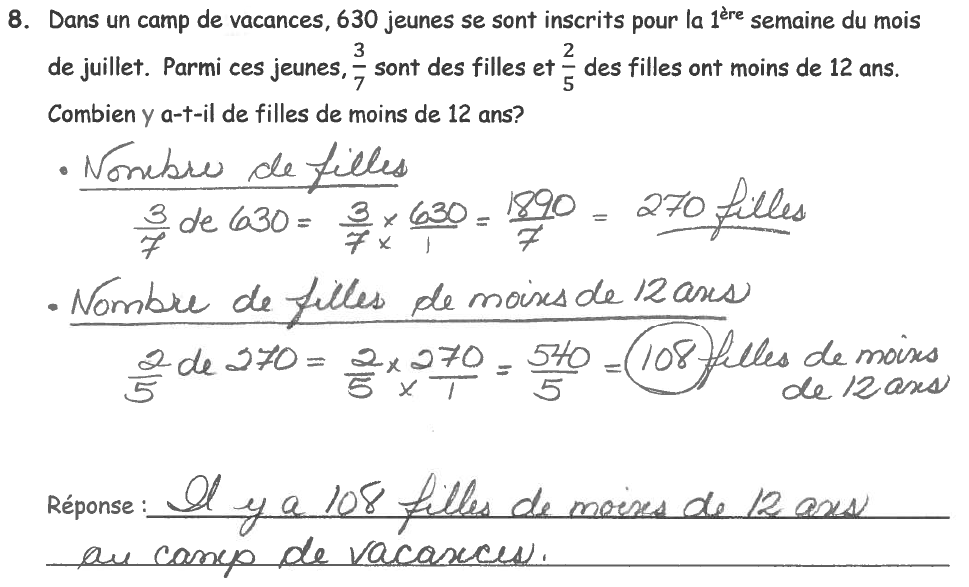 8. Dans un camp de vacances, 630 jeunes se sont inscrits pour la 1ère semaine du mois
de juillet. Parmi ces jeunes, 3/7 sont des filles et 2/5 des filles ont moins de 12 ans.
Combien y a-t-il de filles de moins de 12 ans?
• Nombre de filles
3/7 de 630 = 3/7 × 630/1 = 1890/7 = 270 filles
• Nombre de filles de moins de 12 ans
2/5 de 270 = 2/5 × 270/1 = 540/5 = 108 filles de moins
de 12 ans
Réponse : Il y a 108 filles de moins de 12 ans
au camp de vacances.